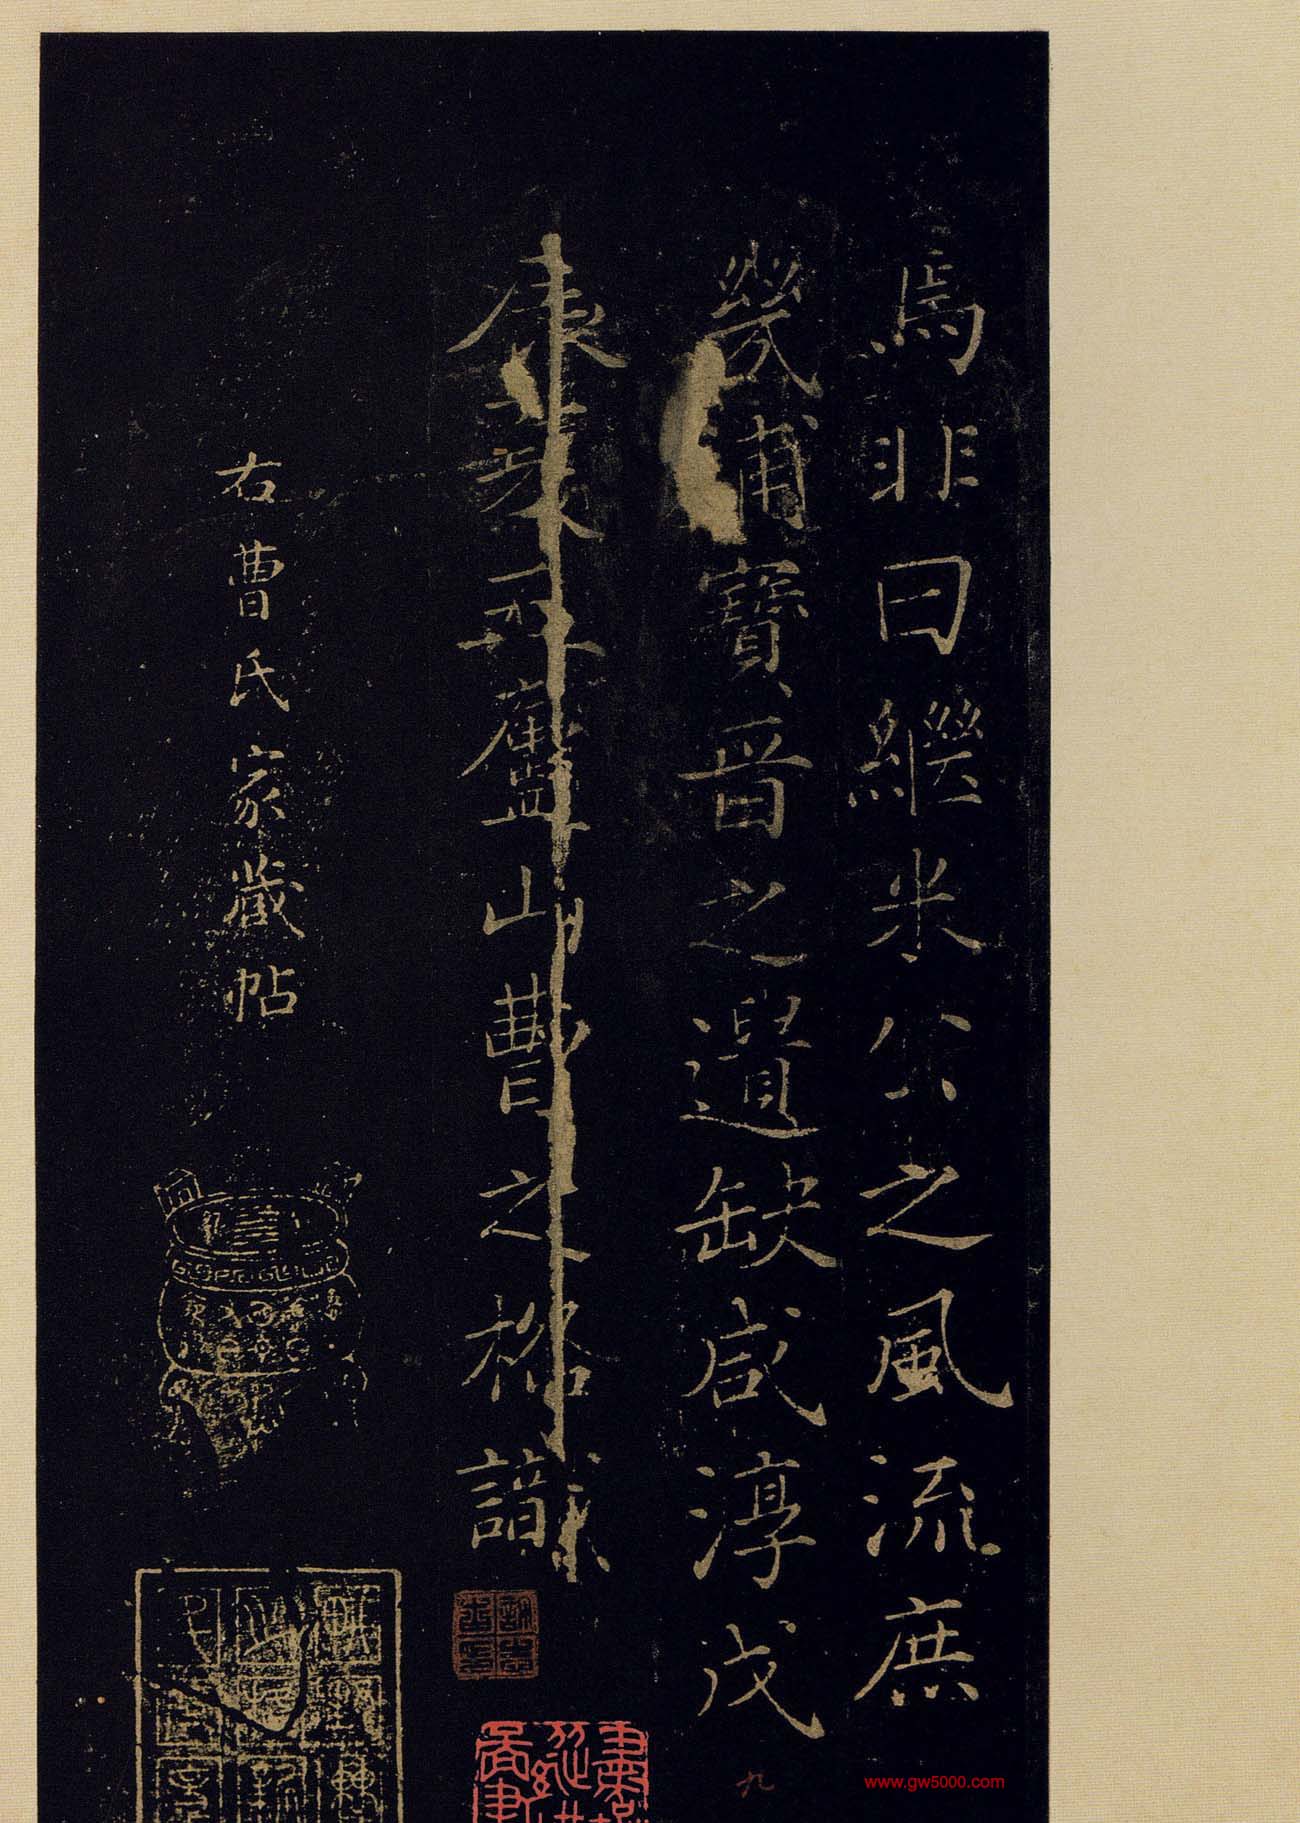 焉非曰繼米公之風流庶
幾補寶晉之遺缺咸淳戊
辰廬山曹之格識
右曹氏家藏帖
九
www.gw5000.com